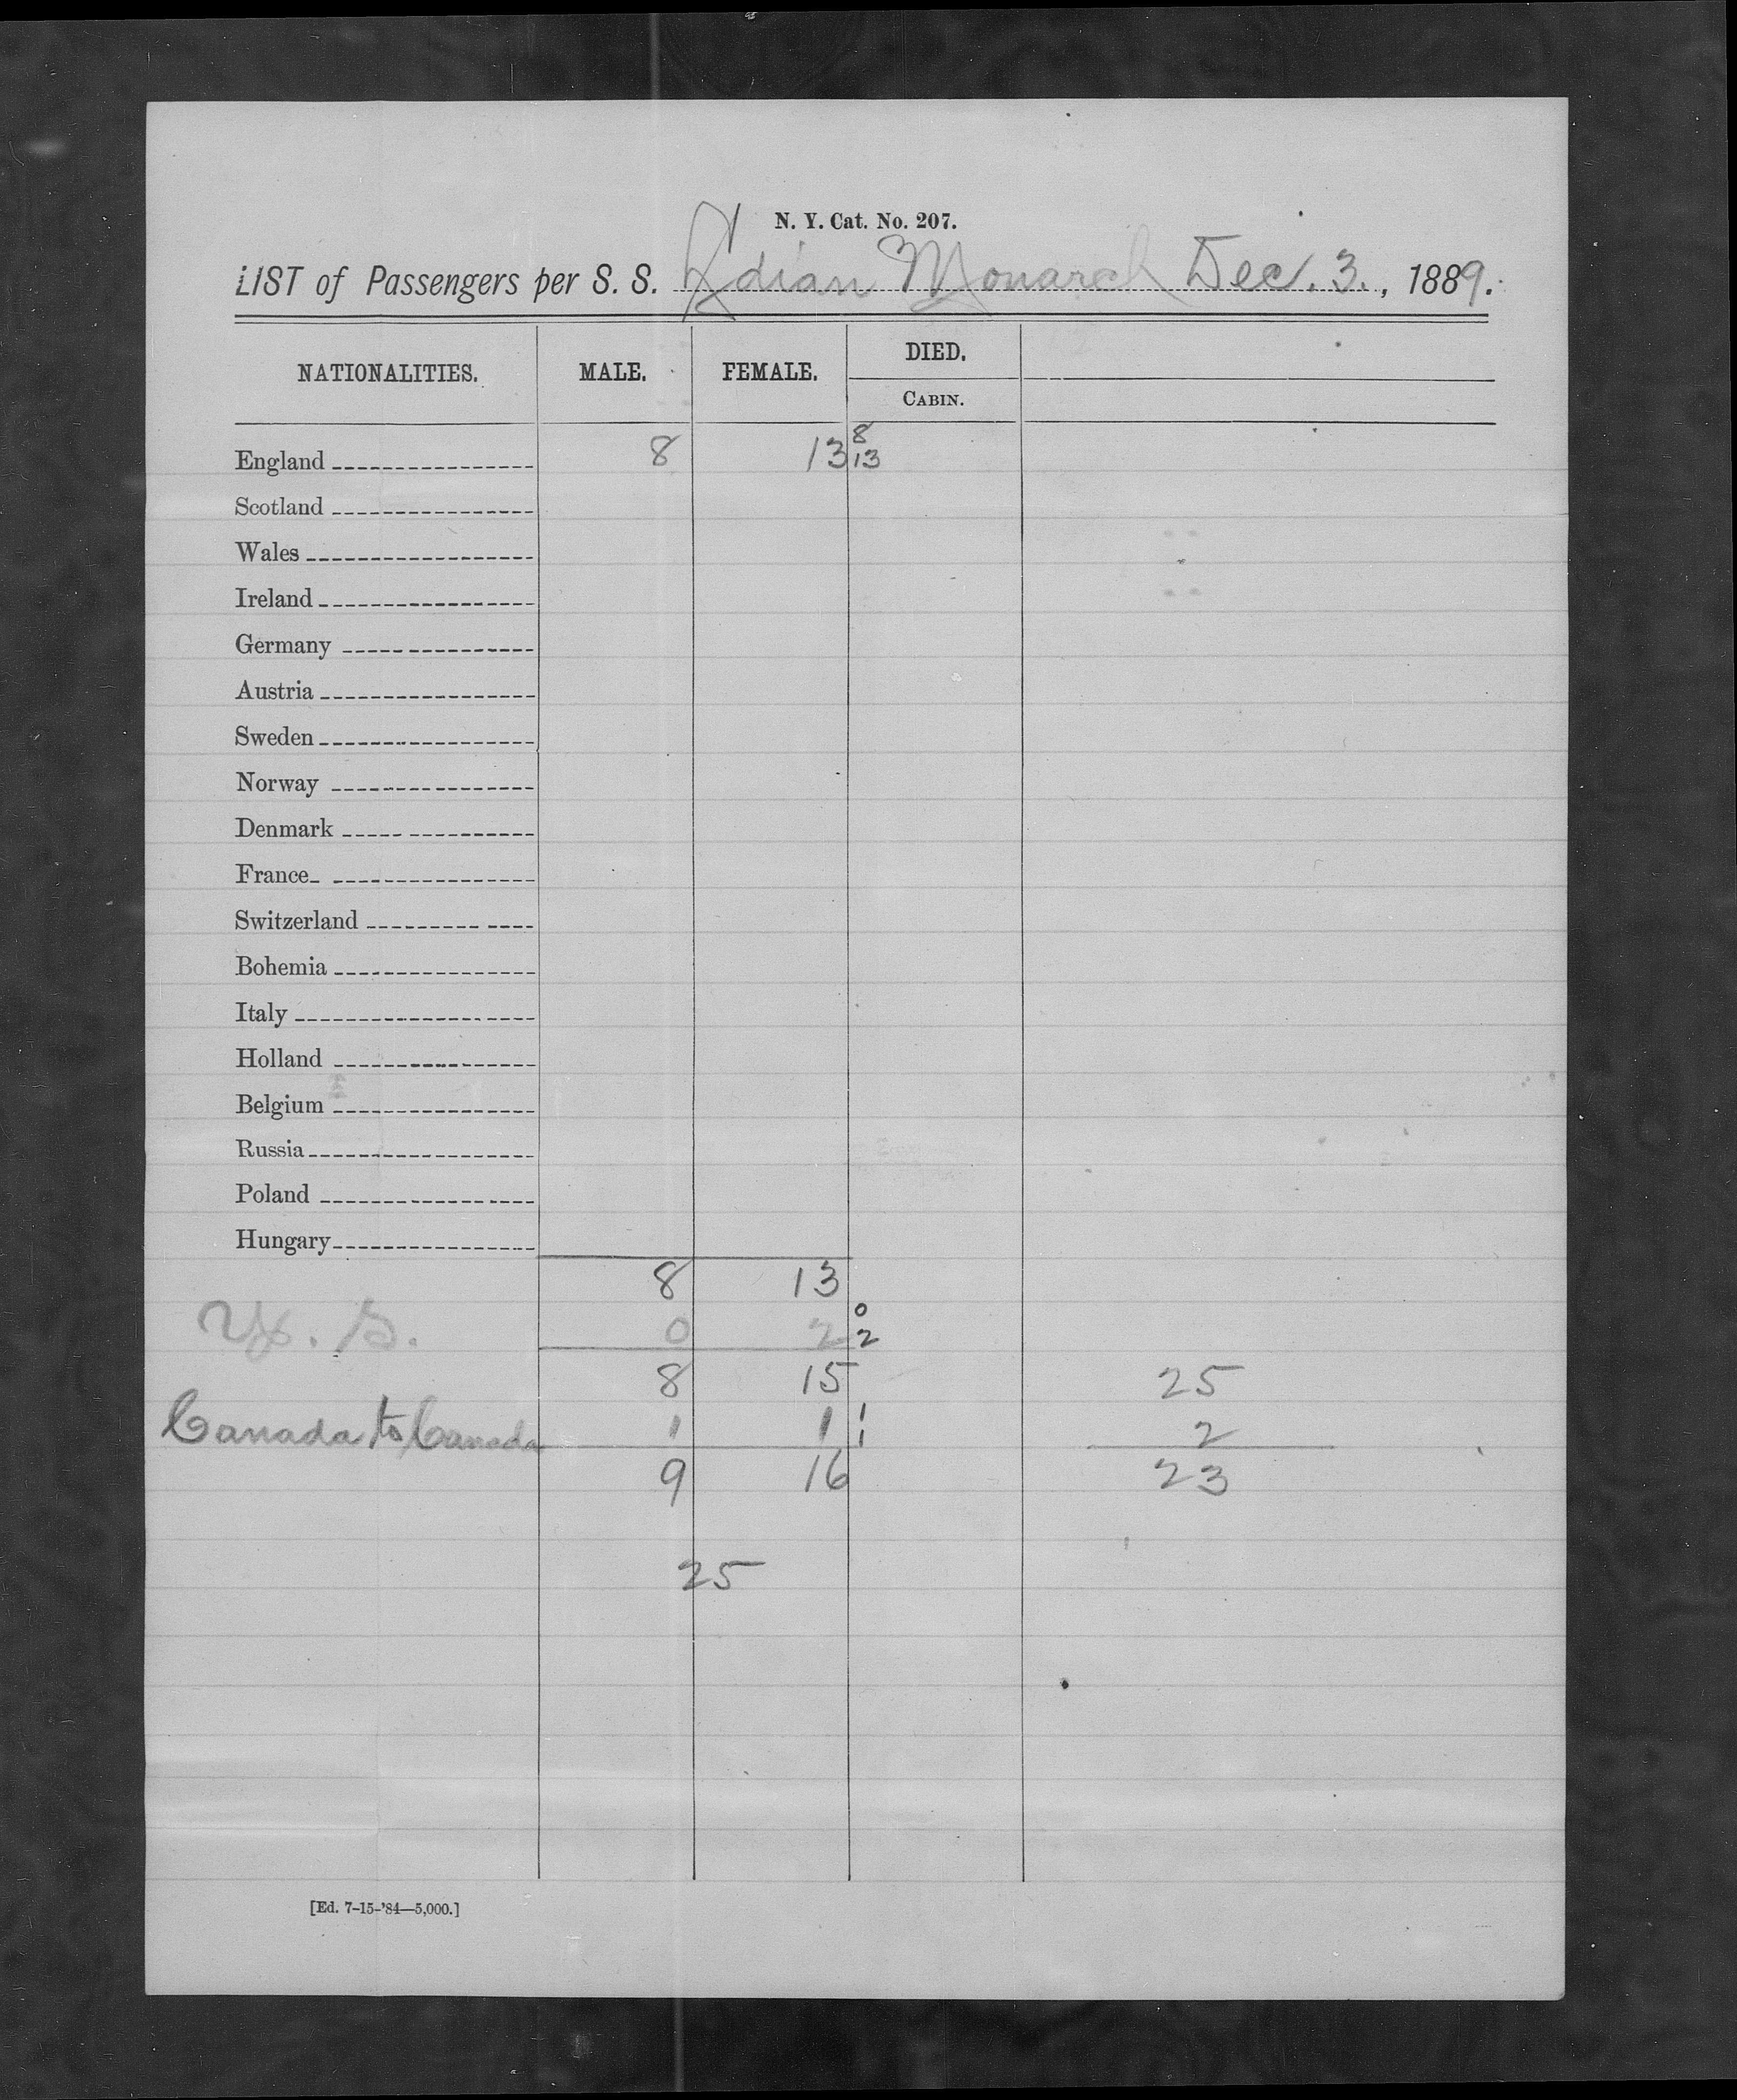 N. Y. Cat. No. 207.
LIST of Passengers per S. S. Ldian Monarch Dec. 3., 1889.
NATIONALITIES. MALE. FEMALE. DIED.
CABIN.
8
England 8 13 13
Scotland
Wales
Ireland
Germany
Austria
Sweden
Norway
Denmark
France
Switzerland
Bohemia
Italy
Holland
Belgium
Russia
Poland
Hungary
8 13
0
U. S. 0 2 2
8 15 25
Canada to Canada 1 1 1 1 2
9 16 23
25
[Ed. 7-15-'84—5,000.]